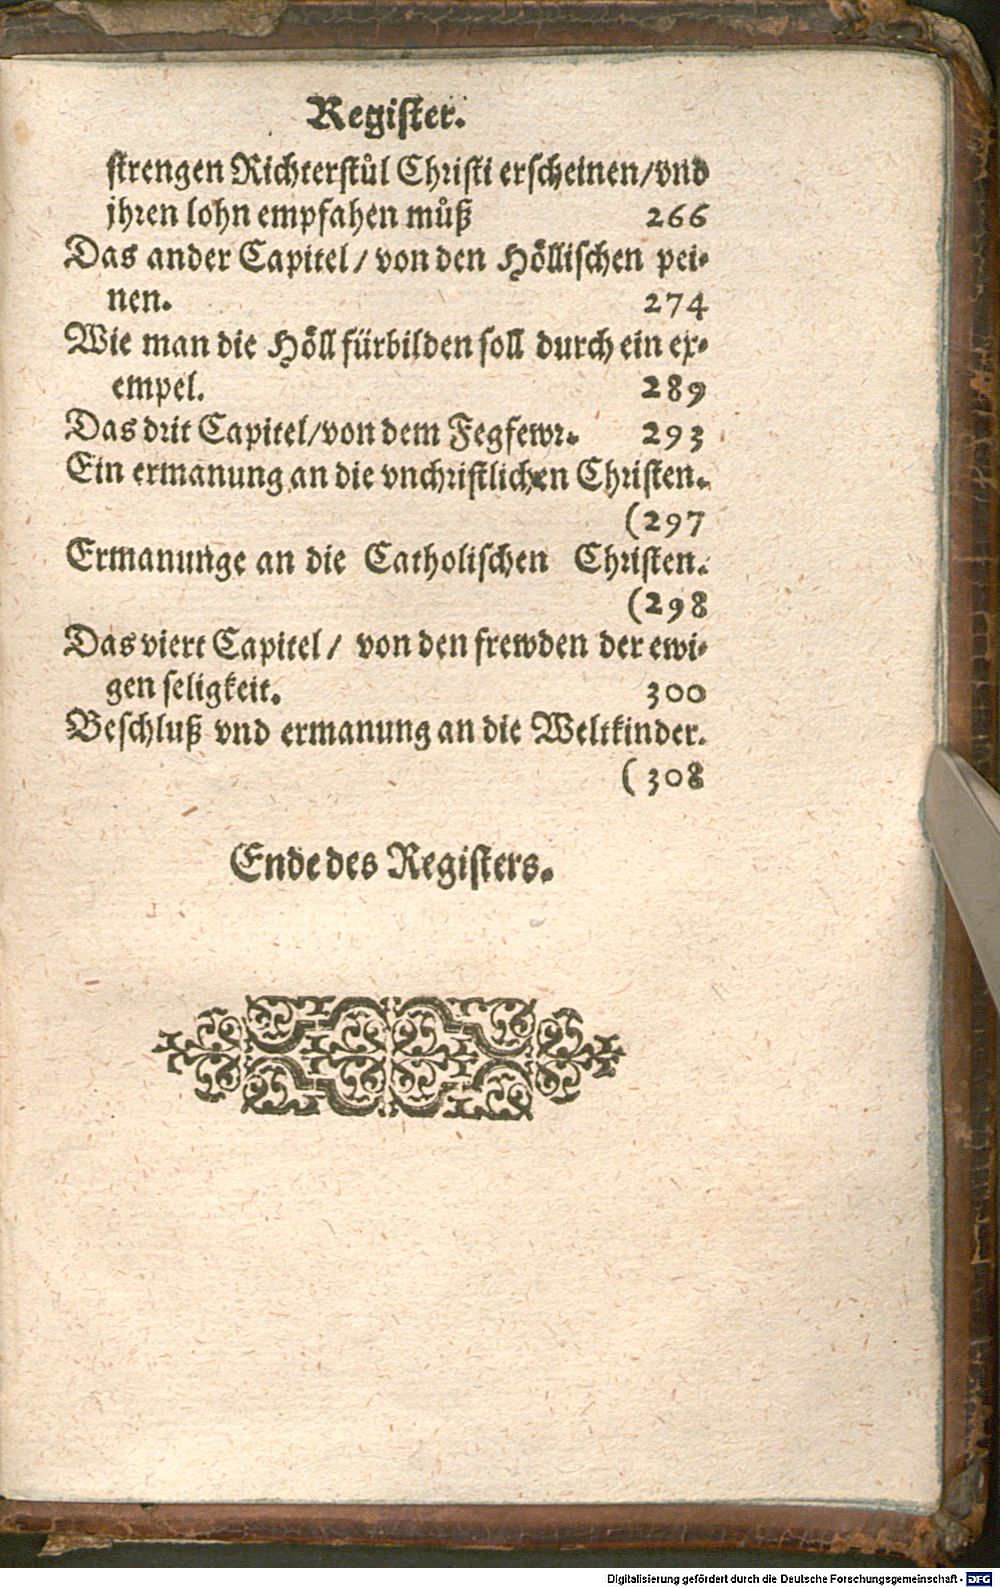 Register.
strengen Richterstůl Christi erscheinen/vnd
jhren lohn empfahen můß 266
Das ander Capitel/ von den Höllischen pei-
nen. 274
Wie man die Höll fürbilden soll durch ein ex-
empel. 289
Das drit Capitel/von dem Fegfewr. 293
Ein ermanung an die vnchristlichen Christen.
(297
Ermanunge an die Catholischen Christen.
(298
Das viert Capitel/ von den frewden der ewi-
gen seligkeit. 300
Beschluß vnd ermanung an die Weltkinder.
(308
Ende des Registers.
Digitalisierung gefördert durch die Deutsche Forschungsgemeinschaft - DFG